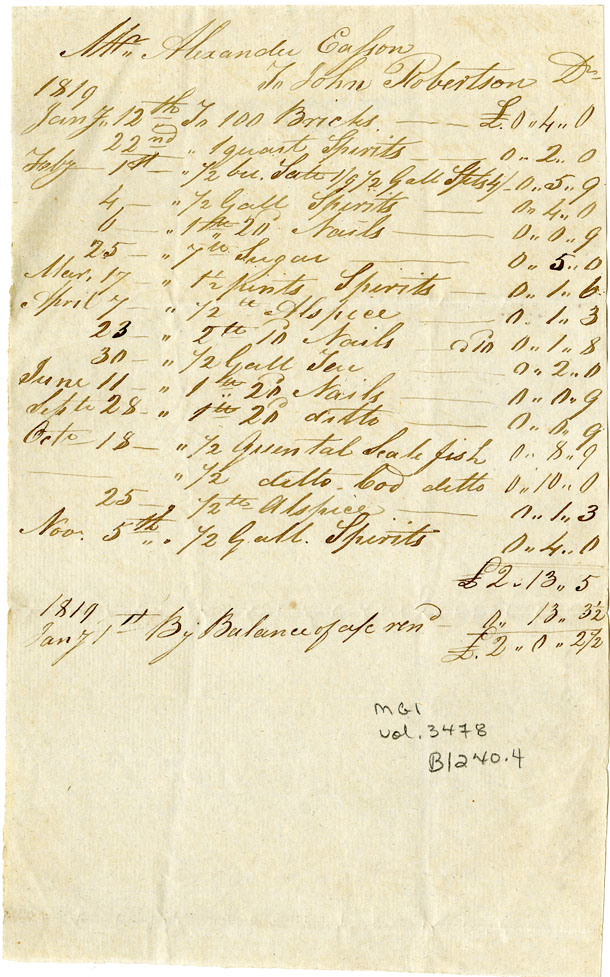 Mr. Alexander Easson
To John Robertson Dr
1819
Jany. 12th To 100 Bricks £ 0 .. 4 .. 0
22nd " 1 quart Spirits 0 .. 2 .. 0
Faby 1st " 1/2 bu. Salt 1/9 1/2 Gall Spts 4/ 0 .. 5 .. 9
4 " 1/2 Gall Spirits 0 .. 4 .. 0
6 " 1 lb 20d Nails 0 .. 0 .. 9
25 " 7 lb Sugar 0 .. 5 .. 0
Mar. 17 " 1 1/2 pints Spirits 0 .. 1 .. 6
April 7 " 1/2 lb Alspice 0 .. 1 .. 3
23 " 2 lb 10d Nails d10 0 .. 1 .. 8
30 " 1/2 Gall Tar 0 .. 2 .. 0
June 11 " 1 lb 20d Nails 0 .. 0 .. 9
Septr 28 " 1 lb 20d ditto 0 .. 0 .. 9
Octr 18 " 1/2 Quental Scale fish 0 .. 8 .. 9
" 1/2 ditto Cod ditto 0 .. 10 .. 0
25 " 1/2 lb Alspice 0 .. 1 .. 3
Nov. 5th " 1/2 Gall. Spirits 0 .. 4 .. 0
£ 2 .. 13 .. 5
1819
Jany 1st By Balance of a/c rend 0 .. 13 .. 3 1/2
£. 2 .. 0 .. 2 1/2
MG1
vol. 3478
B1240.4